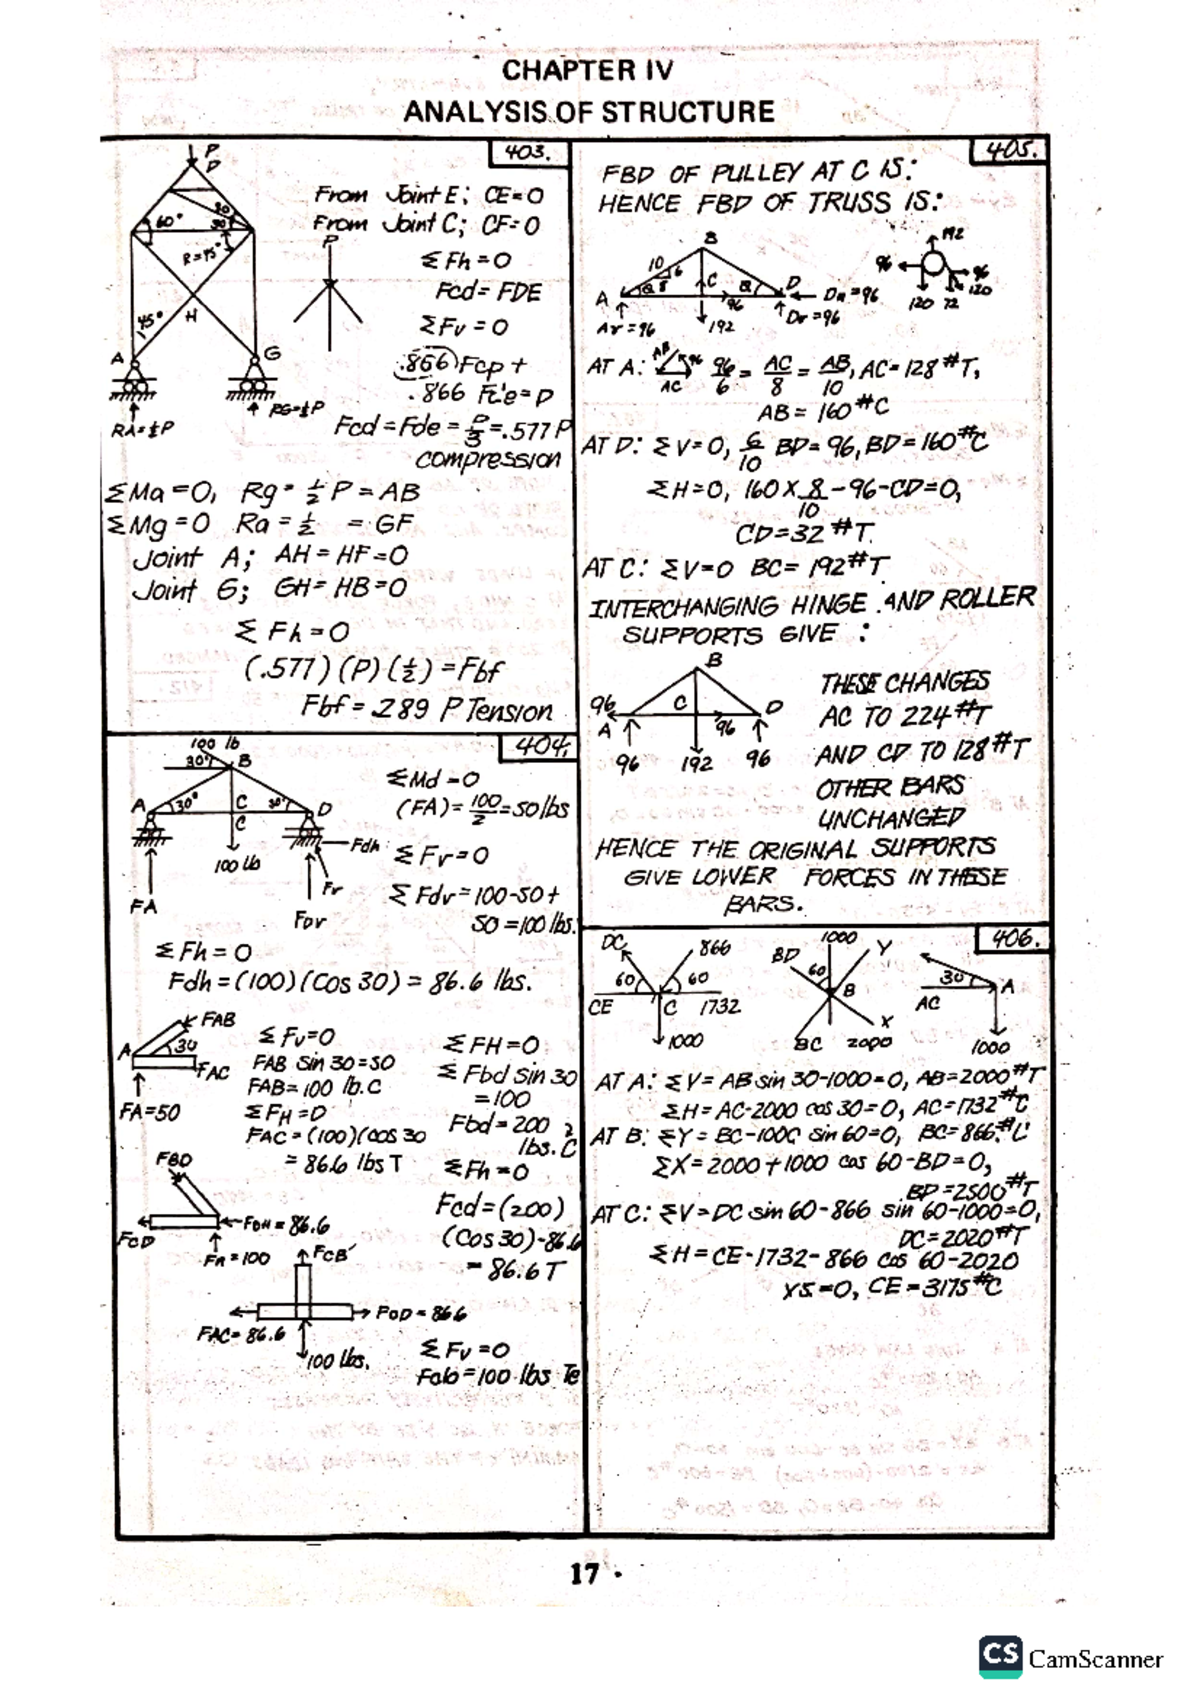 CHAPTER IV
ANALYSIS OF STRUCTURE
403.
P
D
60°
30
30°
R=45°
45°
H
A
G
RA=½P
RG=½P
From Joint E; CE=0
From Joint C; CF=0
P
ΣFh=0
Fcd=FDE
ΣFv=0
.866 Fcp+
.866 Fc'e=P
Fcd=Fde=P/3=.577P
compression
ΣMa=0, Rg=½P=AB
ΣMg=0 Ra=½ =GF
Joint A; AH=HF=0
Joint G; GH=HB=0
ΣFh=0
(.577)(P)(½)=Fbf
Fbf=.289 P Tension
404.
100 lb
30°
B
A
30°
C
30°
D
C
100 lb
Fdh
Fr
FA
Fov
ΣMd=0
(FA)=100/2=50 lbs
ΣFr=0
ΣFdv=100-50+
50=100 lbs.
ΣFh=0
Fdh=(100)(Cos 30)=86.6 lbs.
FAB
A
30
FAC
FA=50
ΣFv=0
FAB Sin 30=50
FAB=100 lb.C
ΣFH=0
FAC=(100)(cos 30
=86.6 lbs T
ΣFH=0
ΣFbd Sin 30
=100
Fbd=200
lbs.C
ΣFh=0
Fcd=(200)
(Cos 30)-86.6
=86.6 T
FBD
FCD
FDH=86.6
FR=100
FCB'
FCD=86.6
FAC=86.6
100 lbs.
ΣFv=0
Fcb=100 lbs Te
405.
FBD OF PULLEY AT C IS:
HENCE FBD OF TRUSS IS:
B
10
6
8
C
A
D
96
Dh=96
Av=96
192
Dv=96
192
96
96
120
72
120
AT A: AB 96 AC 96/6=AC/8=AB/10, AC=128#T,
AB=160#C
AT D: ΣV=0, 6/10 BD=96, BD=160#C
ΣH=0, 160X8/10-96-CD=0,
CD=32#T.
AT C: ΣV=0 BC=192#T
INTERCHANGING HINGE AND ROLLER
SUPPORTS GIVE :
B
96
C
D
A
96
96
192
96
THESE CHANGES
AC TO 224#T
AND CD TO 128#T
OTHER BARS
UNCHANGED
HENCE THE ORIGINAL SUPPORTS
GIVE LOWER FORCES IN THESE
BARS.
406.
DC
866
60
60
CE
C
1732
1000
1000
BD
Y
60
B
X
BC
2000
30
A
AC
1000
AT A: ΣV=AB sin 30-1000=0, AB=2000#T
ΣH=AC-2000 cos 30=0, AC=1732#C
AT B: ΣY=BC-1000 Sin 60=0, BC=866#C
ΣX=2000+1000 cos 60-BD=0,
BD=2500#T
AT C: ΣV=DC sin 60-866 sin 60-1000=0,
DC=2020#T
ΣH=CE-1732-866 cos 60-2020
X.5=0, CE=3175#C
17
CS CamScanner